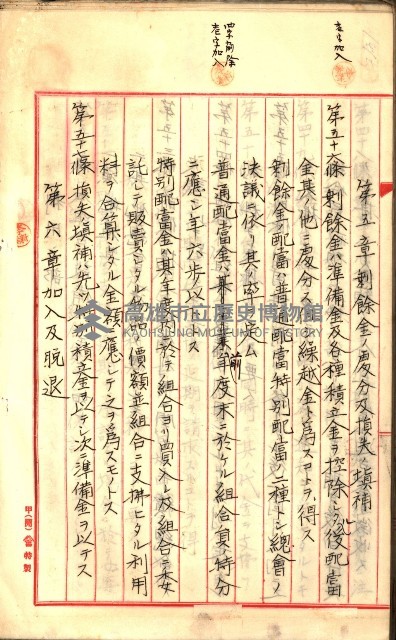 壱字加入
四字削除
壱字加入
第五章 剰餘金ノ處分及損失ノ塡補
第五十六條 剰餘金ハ準備金及各種積立金ヲ控除シタル後配當
金其ノ他ニ處分ス但シ繰越金ト為スコトヲ得ス
剰餘金ノ配當ハ普通配當特別配當ノ二種トシ總會ノ
決議ニ依リ其ノ率ヲ定ム
普通配當金ハ其ノ前年度末ニ於ケル組合員ノ持分
ニ應シ年六歩以下トス
特別配當金ハ其ノ年度ニ於テ組合ヨリ買入レ及組合ニ委
託シテ販賣シタル物品ノ價額並組合ニ支拂ヒタル利用
料ヲ合算シタル金額ニ應シテ之ヲ為スモノトス
第五十七條 損失塡補ハ先ツ積立金ヲ以テシ次ニ準備金ヲ以テス
第六章 加入及脱退
高雄市立歷史博物館
KAOHSIUNG MUSEUM OF HISTORY
甲(團)當特製